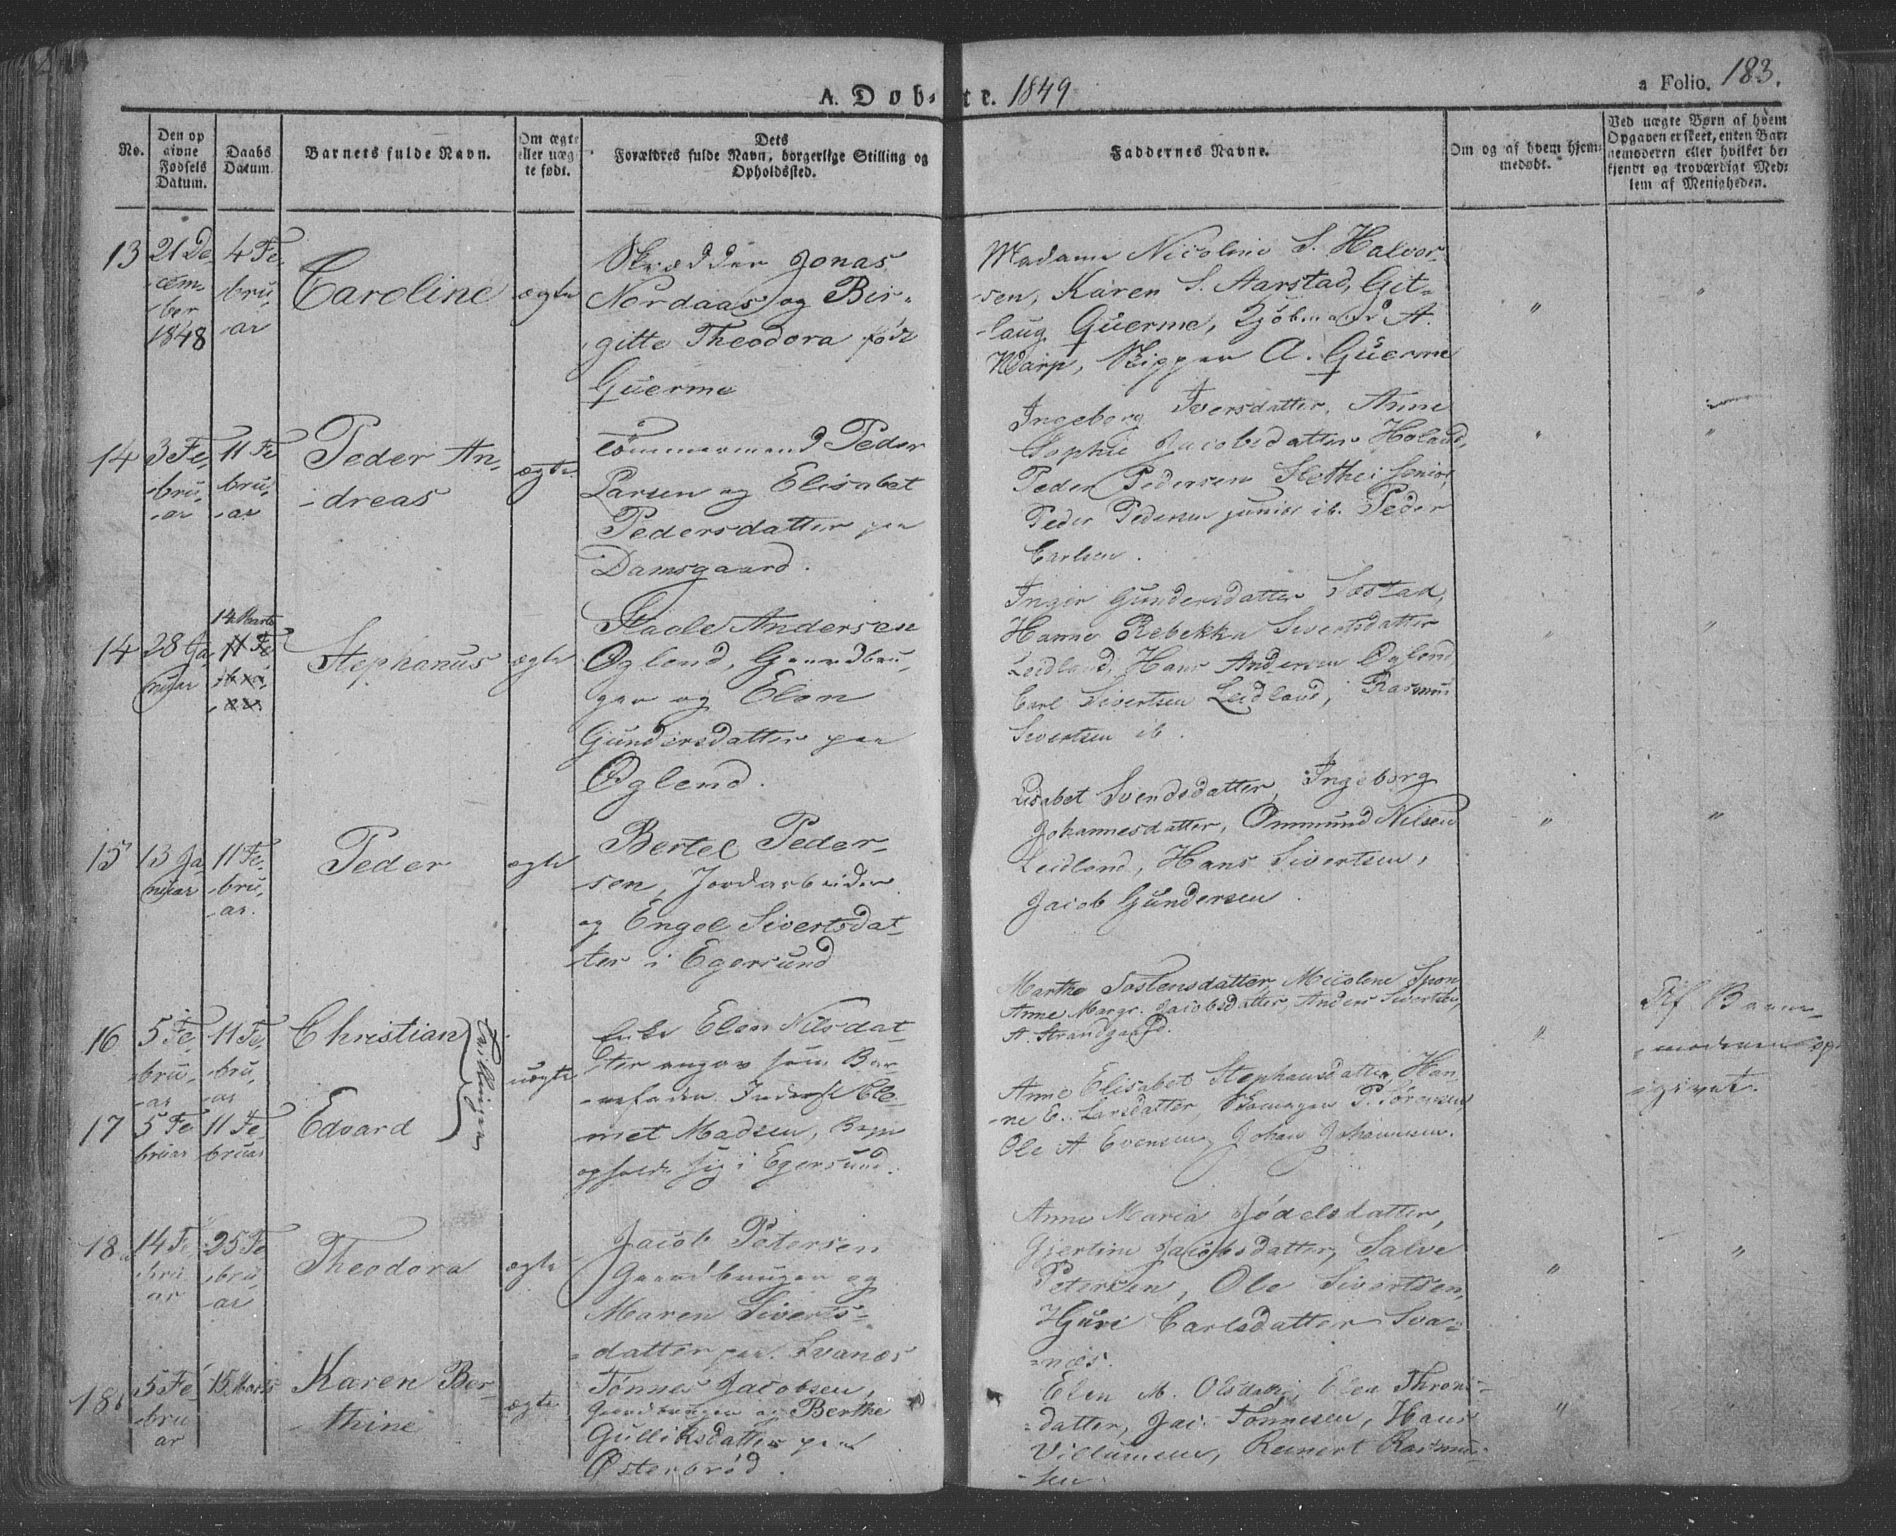 A. Døb-te. 1849
a Folio. 183.
No.
Den op
givne
Fødsels
Datum.
Daabs
Datum.
Barnets fulde Navn.
Om ægte
eller uæg
te født.
Dets
Forældres fulde Navn, borgerlige Stilling og
Opholdssted.
Faddernes Navne.
Om og af hvem hjem-
medøbt.
Ved uægte Børn af hvem
Opgaven er skeet, enten Bar-
nemoderen eller hvilket be-
kjendt og troværdigt Med-
lem af Menigheden.
13
21 De-
cem-
ber
1848
4 Fe-
bru-
ar
Caroline
ægte
Skrædder Jonas
Nordaas og Bir-
gitte Theodora født
Guerme
Madame Nicoline S. Halvor-
sen, Karen S. Aarstad, Git-
laug Guerme, A.
Harp, Skipper A. Guerme
"
"
14
3 Fe-
bru-
ar
11 Fe
bru-
ar
Peder An-
dreas
ægte
Tømmermand Peder
Larsen og Elisabet
Pedersdatter paa
Damsgaard.
Ingeborg Iversdatter, Anne
Sophie Jacobsdatter Høland,
Peder Pedersen Slethei Senior,
Peder Pedersen junior ib. Peder
Carlsen.
"
"
14
28 Ja
nuar
14 Marts
11 Fe
bru-
ar.
Stephanus
ægte
Staale Andersen
Øglend, Gaardbru
ger og Elen
Gundersdatter paa
Øglend.
Inger Gundersdatter Sæstad,
Hanne Rebekka Sivertsdatter
Leidland, Hans Andersen Øglend,
Carl Sivertsen Leidland, Rasmus
Sivertsen ib.
"
"
15
13 Ja
nuar
11 Fe-
bru-
ar.
Peder
ægte
Bertel Peder-
sen, Jordarbeider
og Engel Sivertsdat-
ter i Egersund
Lisabet Svendsdatter, Ingeborg
Johannesdatter, Ommund Nilsen
Leidland, Hans Sivertsen,
Jacob Gundersen.
"
"
16
5 Fe-
bru-
ar
11 Fe-
bru-
ar
Christian
Tvillinger
uægte
Enke Elen Nilsdat-
ter angav som Bar-
nefader Inderst Cle-
met Madsen, Begge
opholde sig i Egersund.
Marthe Tostensdatter, Nicoline
Anne Margr. Jacobsdatter, Anders Sivertsen,
A. Strandgaard.
"
Af Barne-
moderen op-
givet.
17
5 Fe
bruar
11 Fe-
bruar
Edvard
Anne Elisabet Stephansdatter, Han-
ne E. Larsdatter, P. Sørensen,
Ole A Evensen, Johan Johannesen.
18 a
14 Fe
bru
ar
25 Fe
bru
ar
Theodora
ægte
Jacob Petersen
Gaardbruger og
Maren Siverts-
datter paa Svanæs
Anne Maria Jødelsdatter,
Gjertine Jacobsdatter, Salve
Petersen, Ole Sivertsen,
Guri Carlsdatter Sva-
næs.
"
"
18 b
5 Fe-
bru
ar
15 Marts
Karen Ber-
thine
ægte
Tønnes Jacobsen,
Gaardbruger og Berthe
Gulliksdatter paa
Østerbrød.
Elen M. Olsdatter, Elen Thrond-
datter, Jac. Tønnesen, Hans
Villumsen, Reinert Rasmus-
sen.
"